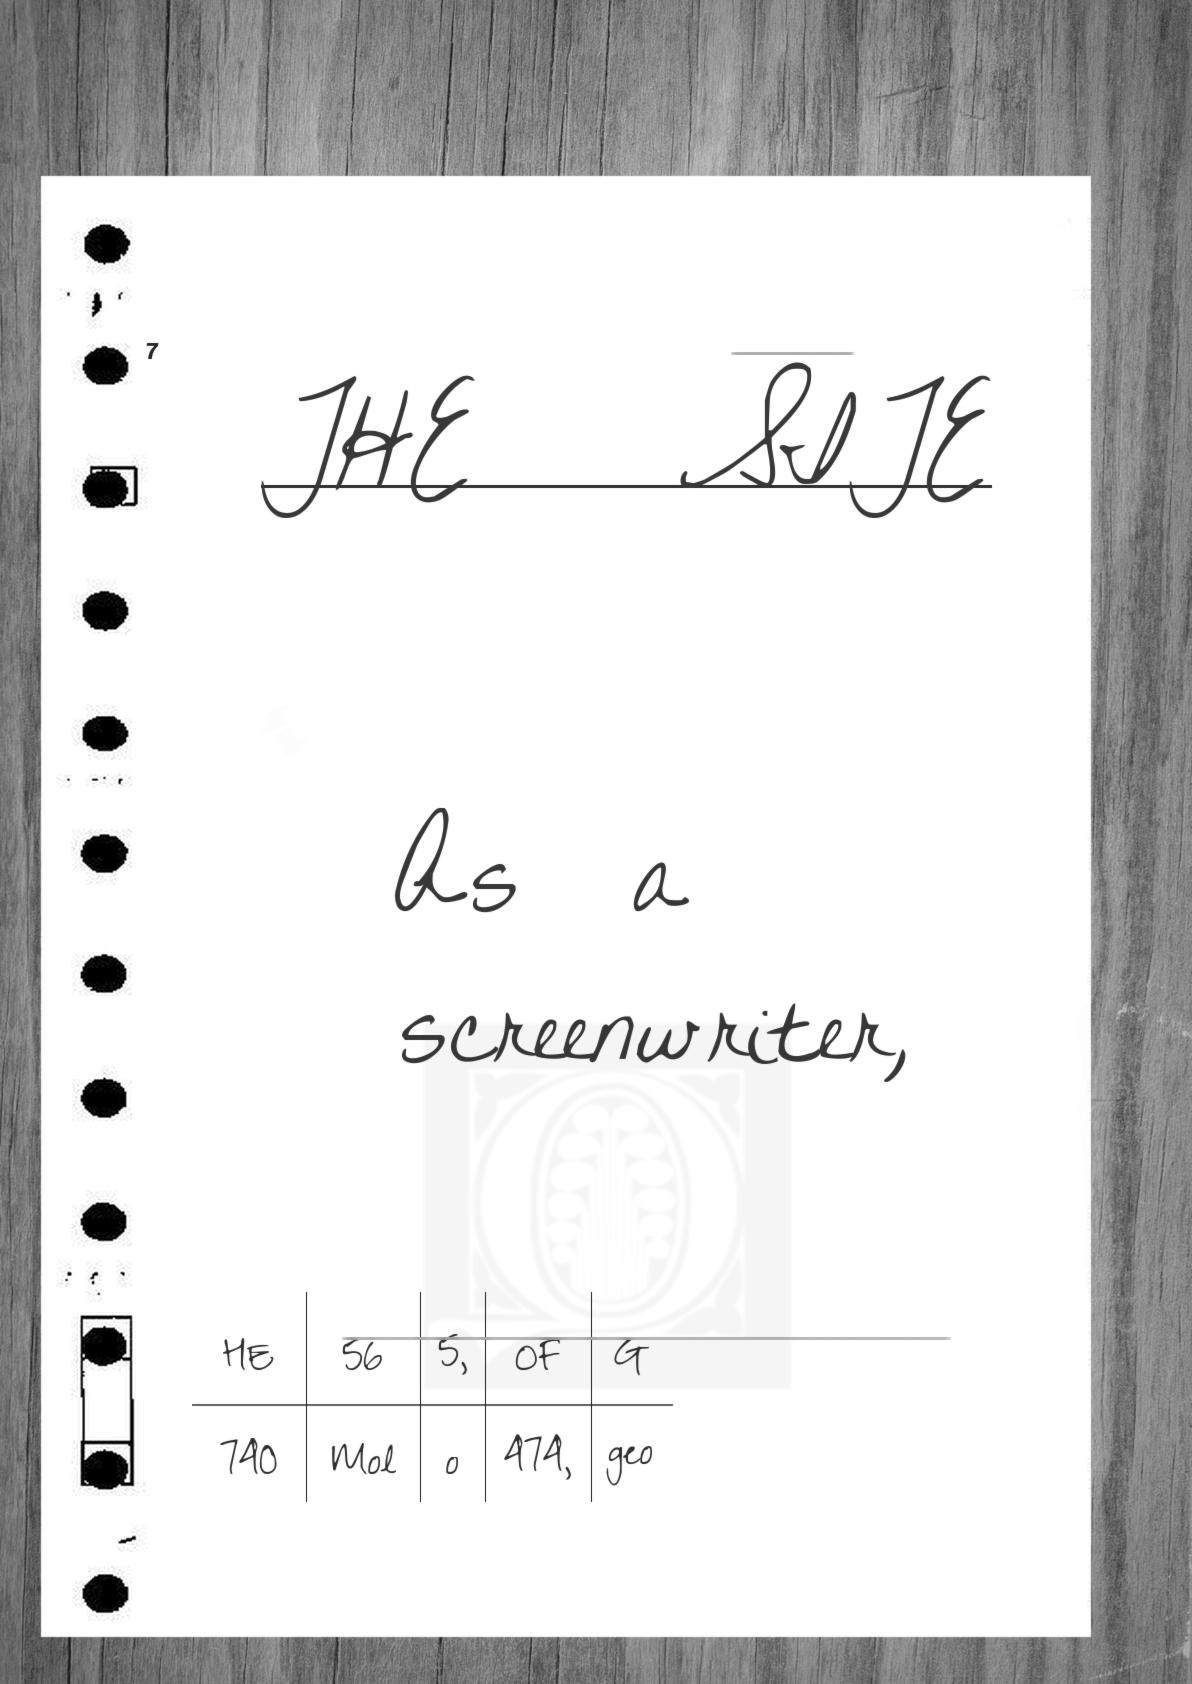 7
THE SITE
As a
screenwriter,
HE 56 5, OF G
740 Mol o 474, geo